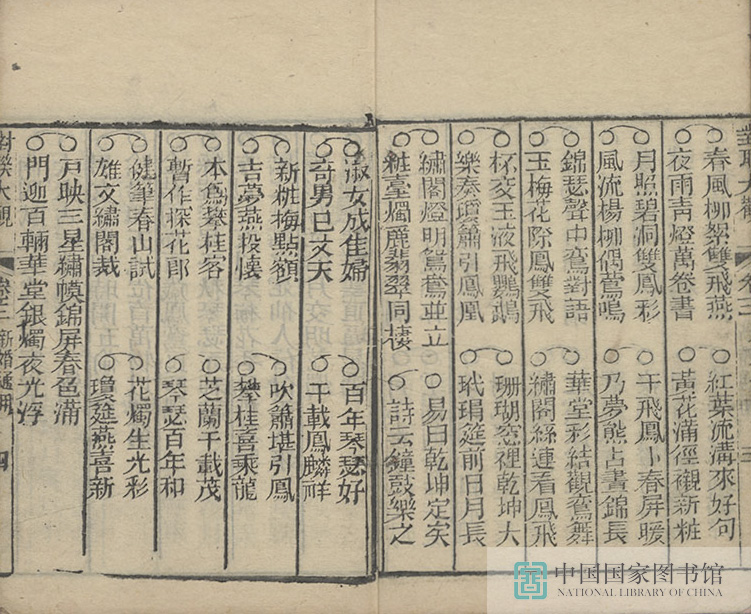 春風柳絮雙飛燕
紅葉流溝來好句
夜雨青燈萬卷書
黃花滿徑襯新粧
月照碧洞雙鳳彩
于飛鳳卜春屏暖
風流楊柳偶鶯鳴
乃夢熊占晝錦長
錦瑟聲中鸞對語
華堂彩結觀鸞舞
玉梅花際鳳雙飛
繡閣絲連看鳳飛
杯交玉液飛鸚鵡
珊瑚窓裡乾坤大
樂奏瓊簫引鳳凰
玳瑁筵前日月長
繡閣燈明鴛鴦並立
易曰乾坤定矣
粧臺燭麗翡翠同棲
詩云鐘鼓樂之
淑女成佳婦
百年琴瑟好
奇男已丈夫
千載鳳麟祥
新粧梅點額
吹簫堪引鳳
吉夢燕投懷
攀桂喜乘龍
本爲攀桂客
芝蘭千載茂
暫作探花郎
琴瑟百年和
健筆春山試
花燭生光彩
雄文繡閣裁
瓊筵燕喜新
戸映三星繡幙錦屏春色滿
門迎百輛華堂銀燭夜光浮
對聯大觀
卷十二
新婚通用
四
中国国家图书馆
NATIONAL LIBRARY OF CHINA